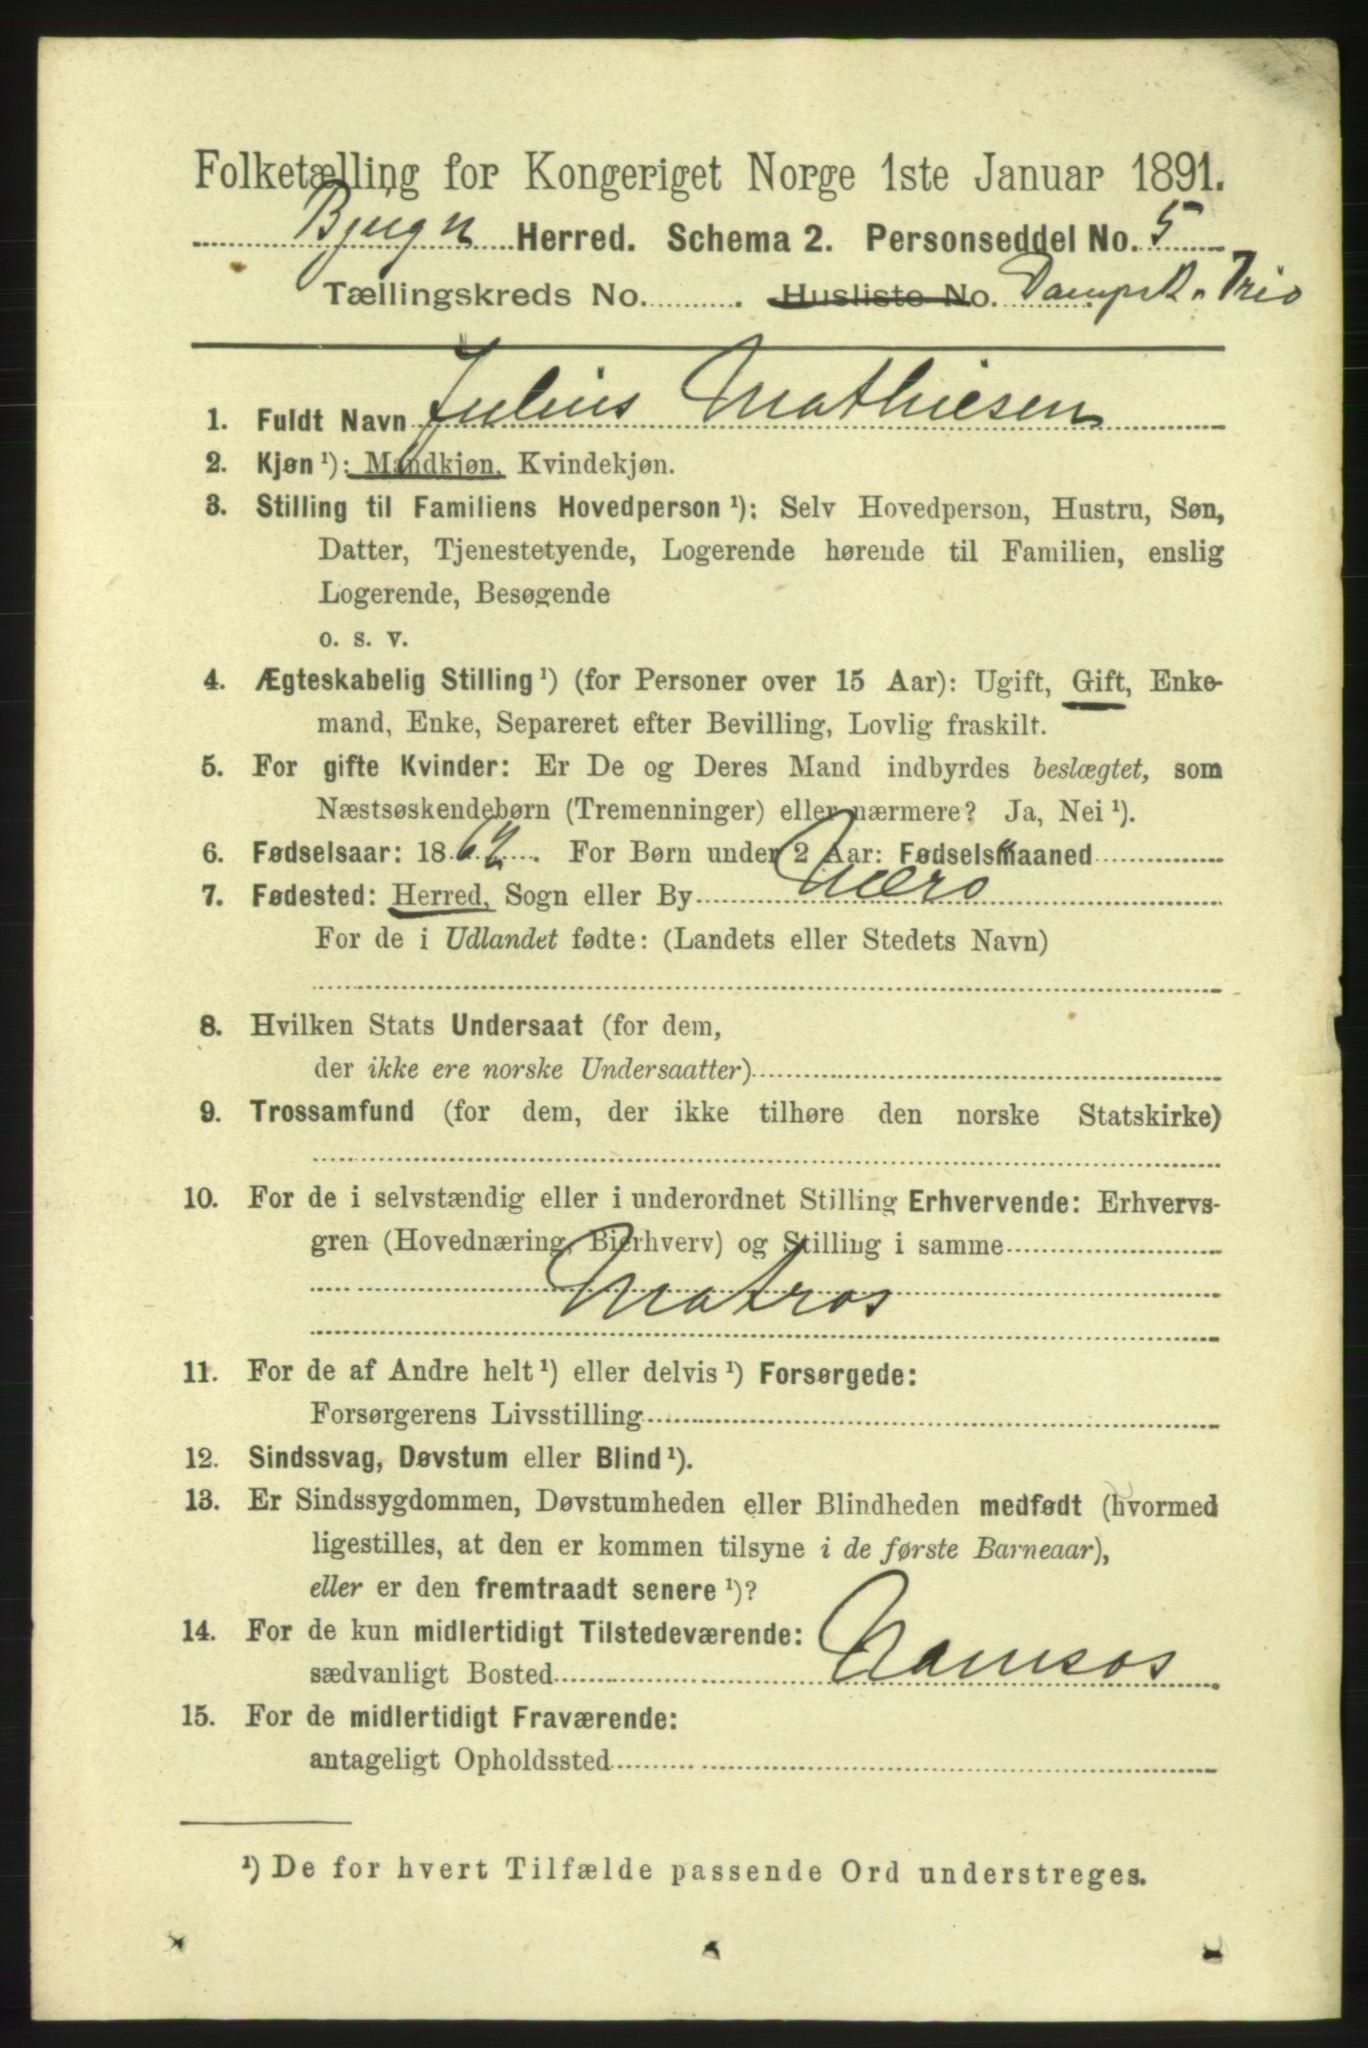 Folketælling for Kongeriget Norge 1ste Januar 1891.
Bjugn Herred. Schema 2. Personseddel No. 5
Tællingskreds No. . Husliste No. Dampsk. Trio
1. Fuldt Navn Julius Mathiesen
2. Kjøn ¹): Mandkjøn, Kvindekjøn.
3. Stilling til Familiens Hovedperson ¹): Selv Hovedperson, Hustru, Søn,
Datter, Tjenestetyende, Logerende hørende til Familien, enslig
Logerende, Besøgende
o. s. v.
4. Ægteskabelig Stilling ¹) (for Personer over 15 Aar): Ugift, Gift, Enke-
mand, Enke, Separeret efter Bevilling, Lovlig fraskilt.
5. For gifte Kvinder: Er De og Deres Mand indbyrdes beslægtet, som
Næstsøskendebørn (Tremenninger) eller nærmere? Ja, Nei ¹).
6. Fødselsaar: 1862. For Børn under 2 Aar: Fødselsmaaned
7. Fødested: Herred, Sogn eller By Nærø
For de i Udlandet fødte: (Landets eller Stedets Navn)
8. Hvilken Stats Undersaat (for dem,
der ikke ere norske Undersaatter)
9. Trossamfund (for dem, der ikke tilhøre den norske Statskirke)
10. For de i selvstændig eller i underordnet Stilling Erhvervende: Erhvervs-
gren (Hovednæring, Bierhverv) og Stilling i samme
Matros
11. For de af Andre helt ¹) eller delvis ¹) Forsørgede:
Forsørgerens Livsstilling
12. Sindssvag, Døvstum eller Blind ¹).
13. Er Sindssygdommen, Døvstumheden eller Blindheden medfødt (hvormed
ligestilles, at den er kommen tilsyne i de første Barneaar),
eller er den fremtraadt senere ¹)?
14. For de kun midlertidigt Tilstedeværende:
sædvanligt Bosted Namsos
15. For de midlertidigt Fraværende:
antageligt Opholdssted
¹) De for hvert Tilfælde passende Ord understreges.